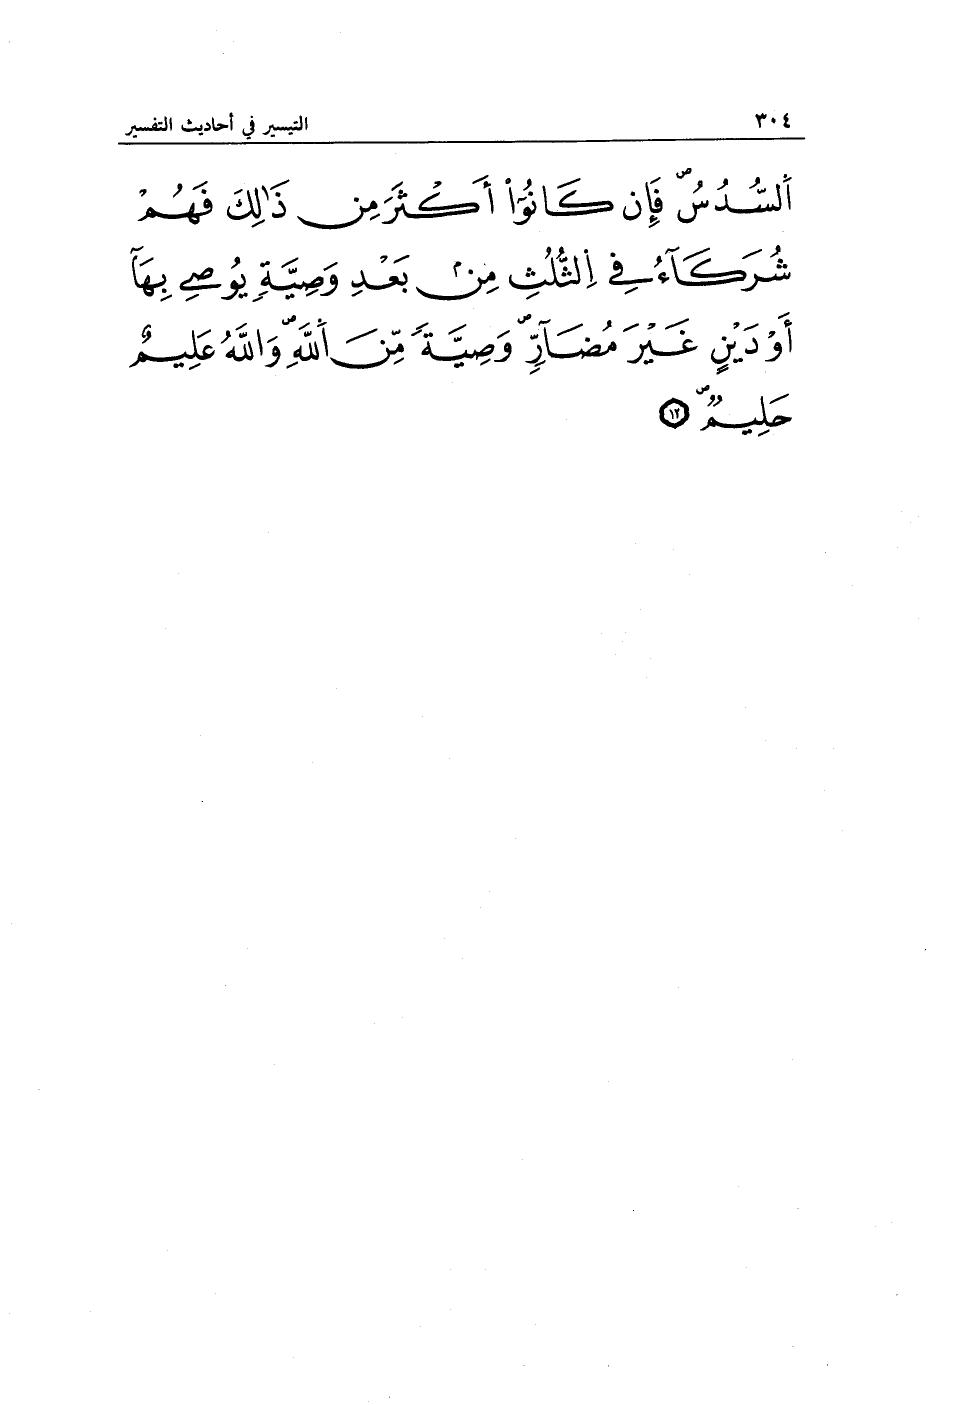 ٣٠٤ التيسير في أحاديث التفسير
اَ۬لسُّدُسُۖ فَإِن كَانُوٓاْ أَكْثَرَ مِن ذَٰلِكَ فَهُمْ
شُرَكَآءُ فِے اِ۬لثُّلُثِ مِنۢ بَعْدِ وَصِيَّةٖ يُوصِے بِهَآ
أَوْ دَيْنٍ غَيْرَ مُضَآرّٖۖ وَصِيَّةٗ مِّنَ اَ۬للَّهِۖ وَاللَّهُ عَلِيمٌ
حَلِيمٞۖ ١٢